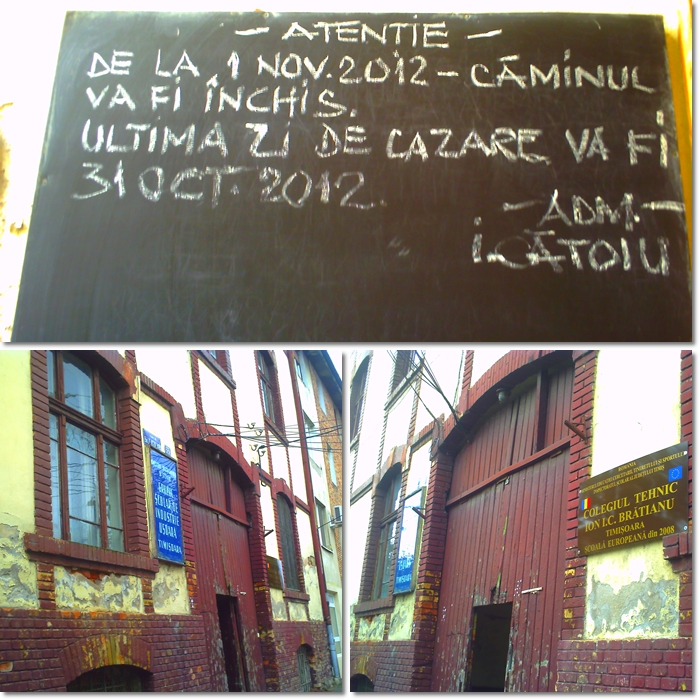 — ATENȚIE —
DE LA 1 NOV. 2012 - CĂMINUL
VA FI ÎNCHIS.
ULTIMA ZI DE CAZARE VA FI
31 OCT. 2012.
— ADM. —
I. CĂTOIU
GRUP
ȘCOLAR DE
INDUSTRIE
UȘOARĂ
TIMIȘOARA
ROMÂNIA
COLEGIUL TEHNIC
ION I.C. BRĂTIANU
TIMIȘOARA
ȘCOALĂ EUROPEANĂ din 2008